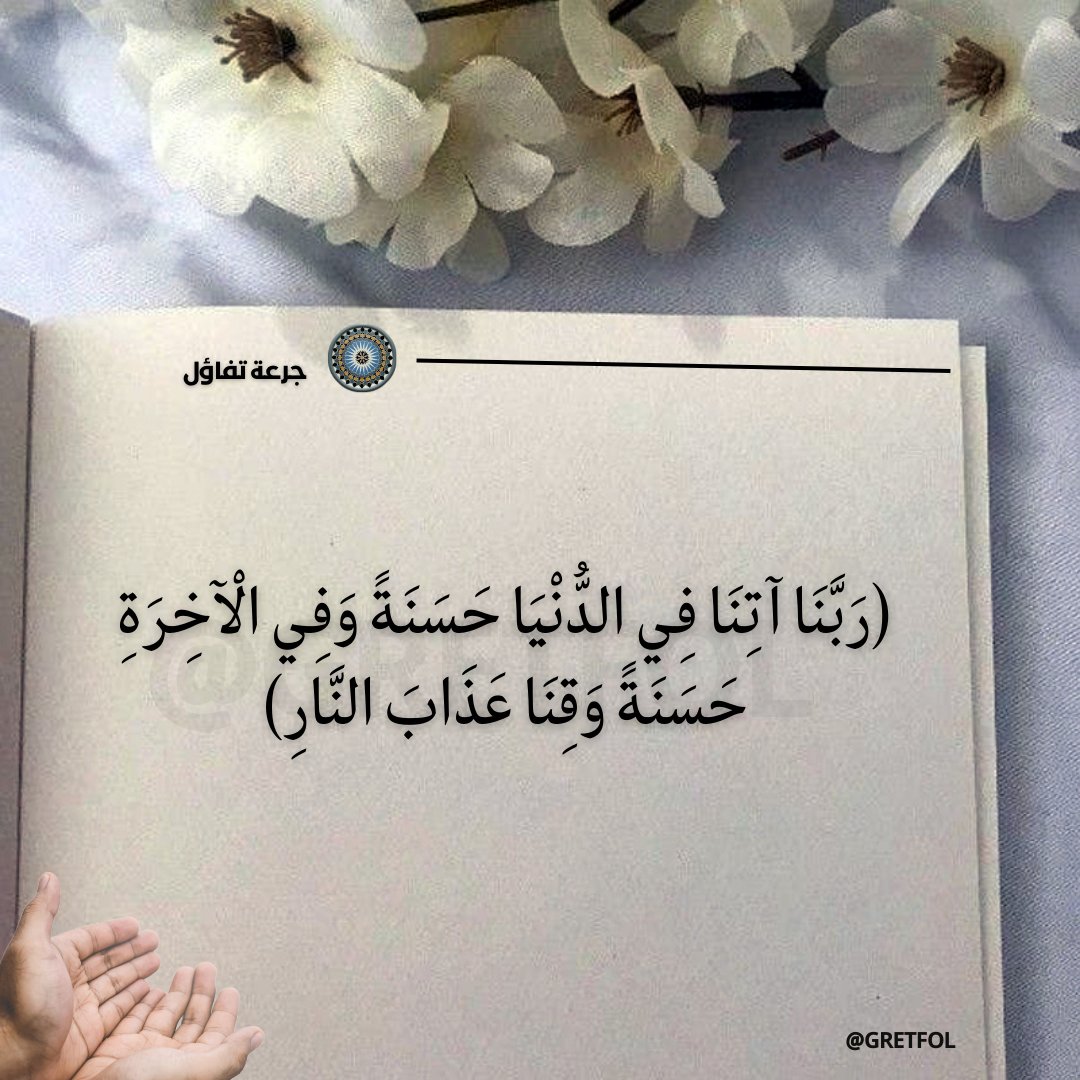 جرعة تفاؤل
(رَبَّنَا آتِنَا فِي الدُّنْيَا حَسَنَةً وَفِي الْآخِرَةِ
حَسَنَةً وَقِنَا عَذَابَ النَّارِ)
@GRETFOL